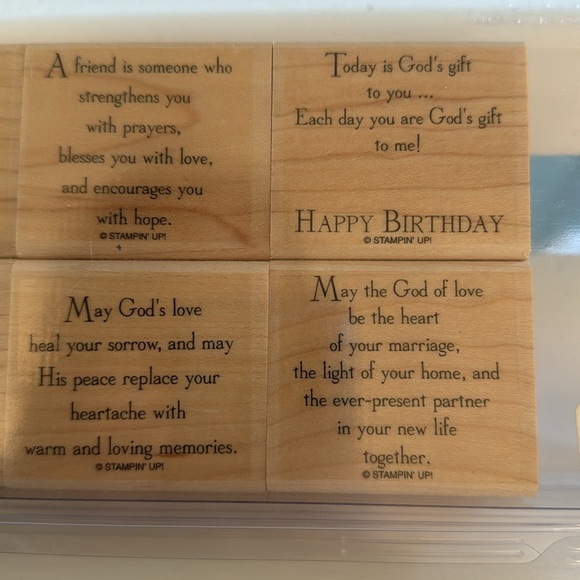 A friend is someone who
strengthens you
with prayers,
blesses you with love,
and encourages you
with hope.
© STAMPIN' UP!
Today is God's gift
to you ...
Each day you are God's gift
to me!
HAPPY BIRTHDAY
© STAMPIN' UP!
May God's love
heal your sorrow, and may
His peace replace your
heartache with
warm and loving memories.
© STAMPIN' UP!
May the God of love
be the heart
of your marriage,
the light of your home, and
the ever-present partner
in your new life
together.
© STAMPIN' UP!